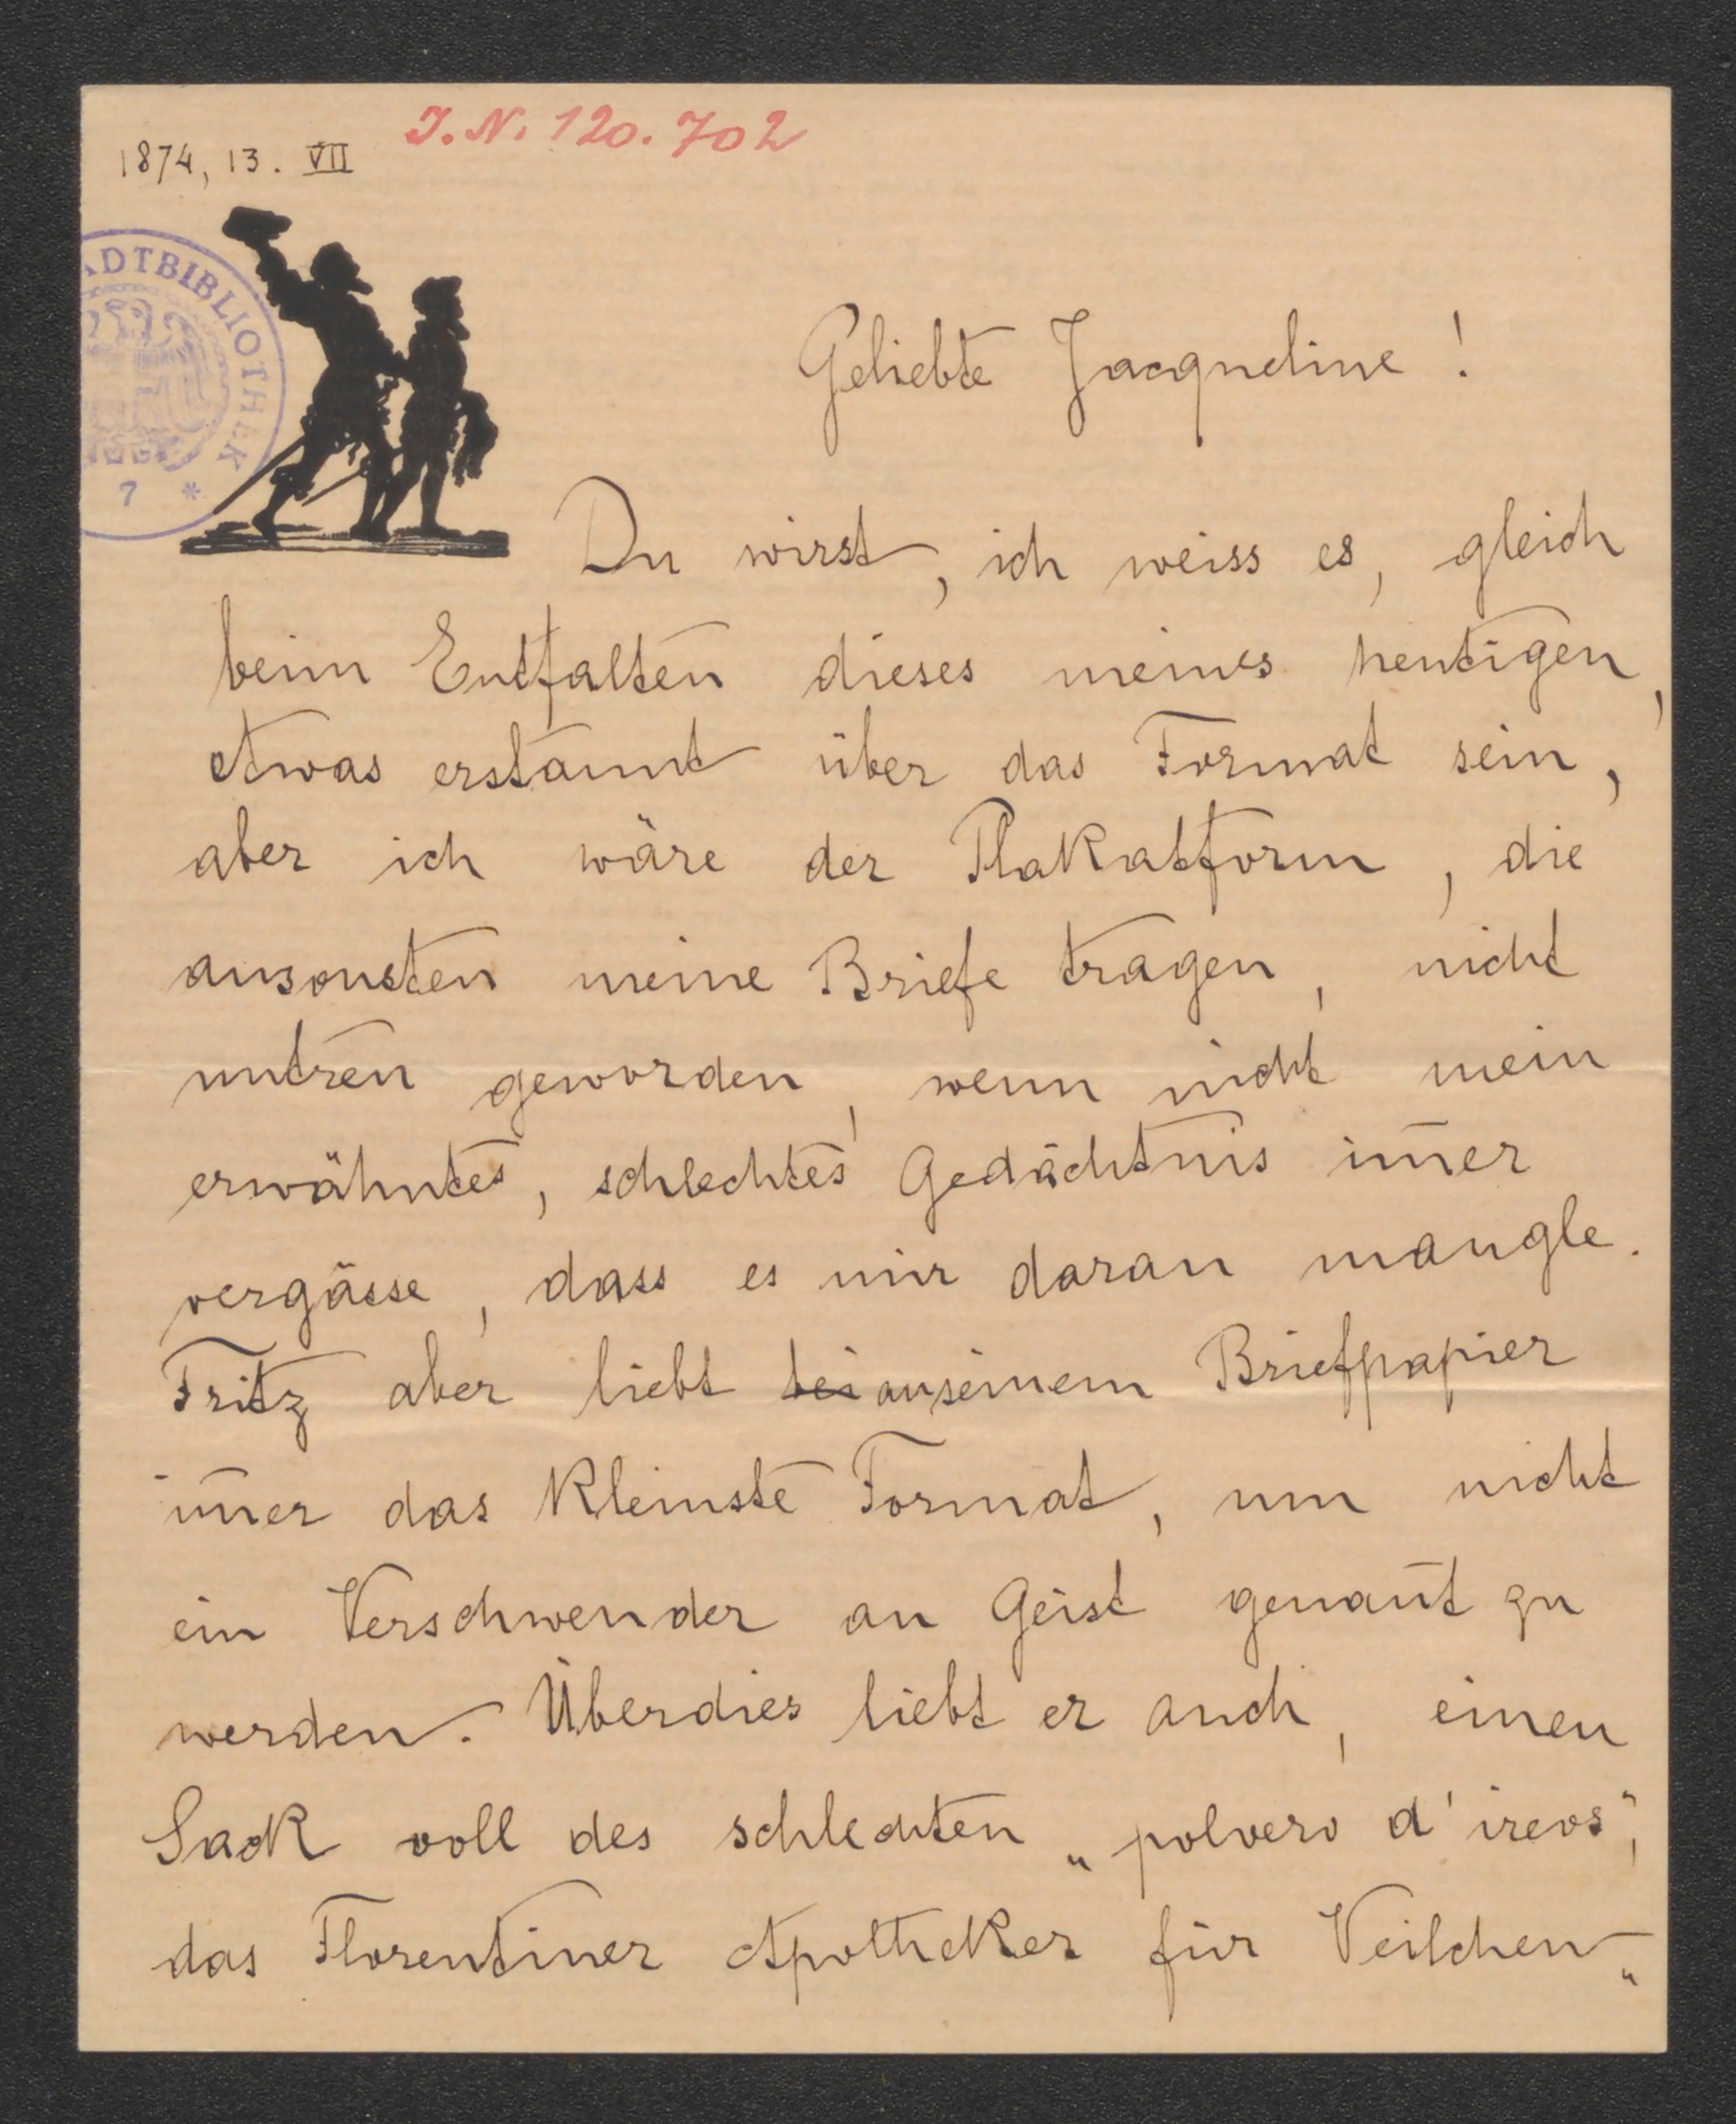 J. N. 120.702
1874, 13. VII
ADTBIBLIOTHEK
7 *
Geliebte Jacqueline !
Du wirst, ich weiss es, gleich
beim Entfalten dieses meines heutigen,
etwas erstaunt über das Format sein,
aber ich wäre der Plakatform, die
ansonsten meine Briefe tragen, nicht
untreu geworden, wenn nicht mein
erwähntes, schlechtes Gedächtnis im̄er
vergässe, dass es mir daran mangle.
Fritz aber liebt bei an seinem Briefpapier
im̄er das kleinste Format, um nicht
ein Verschwender an Geist genan̄t zu
werden. Überdies liebt er auch, einen
Sack voll des schlechten „polvero d'ireos",
das Florentiner Apotheker für Veilchen „